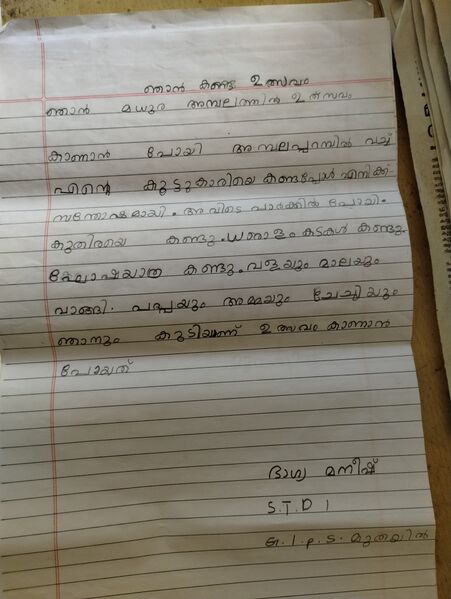 ഞാൻ കണ്ട ഉത്സവം
ഞാൻ മധുര അമ്പലത്തിൽ ഉത്സവം
കാണാൻ പോയി അമ്പലപ്പറമ്പിൽ വച്ച്
എന്റെ കൂട്ടുകാരിയെ കണ്ടപ്പോൾ എനിക്ക്
സന്തോഷമായി. അവിടെ പാർക്കിൽ പോയി.
കുതിരയെ കണ്ടു. ധാരാളം കടകൾ കണ്ടു.
ഘോഷയാത്ര കണ്ടു. വളയും മാലയും
വാങ്ങി. പപ്പയും അമ്മയും ചേച്ചിയും
ഞാനും കൂടിയാണ് ഉത്സവം കാണാൻ
പോയത്
ഭാഗ്യ മനീഷ്
S.T.D 1
G.L.P.S. മുതയിൽ